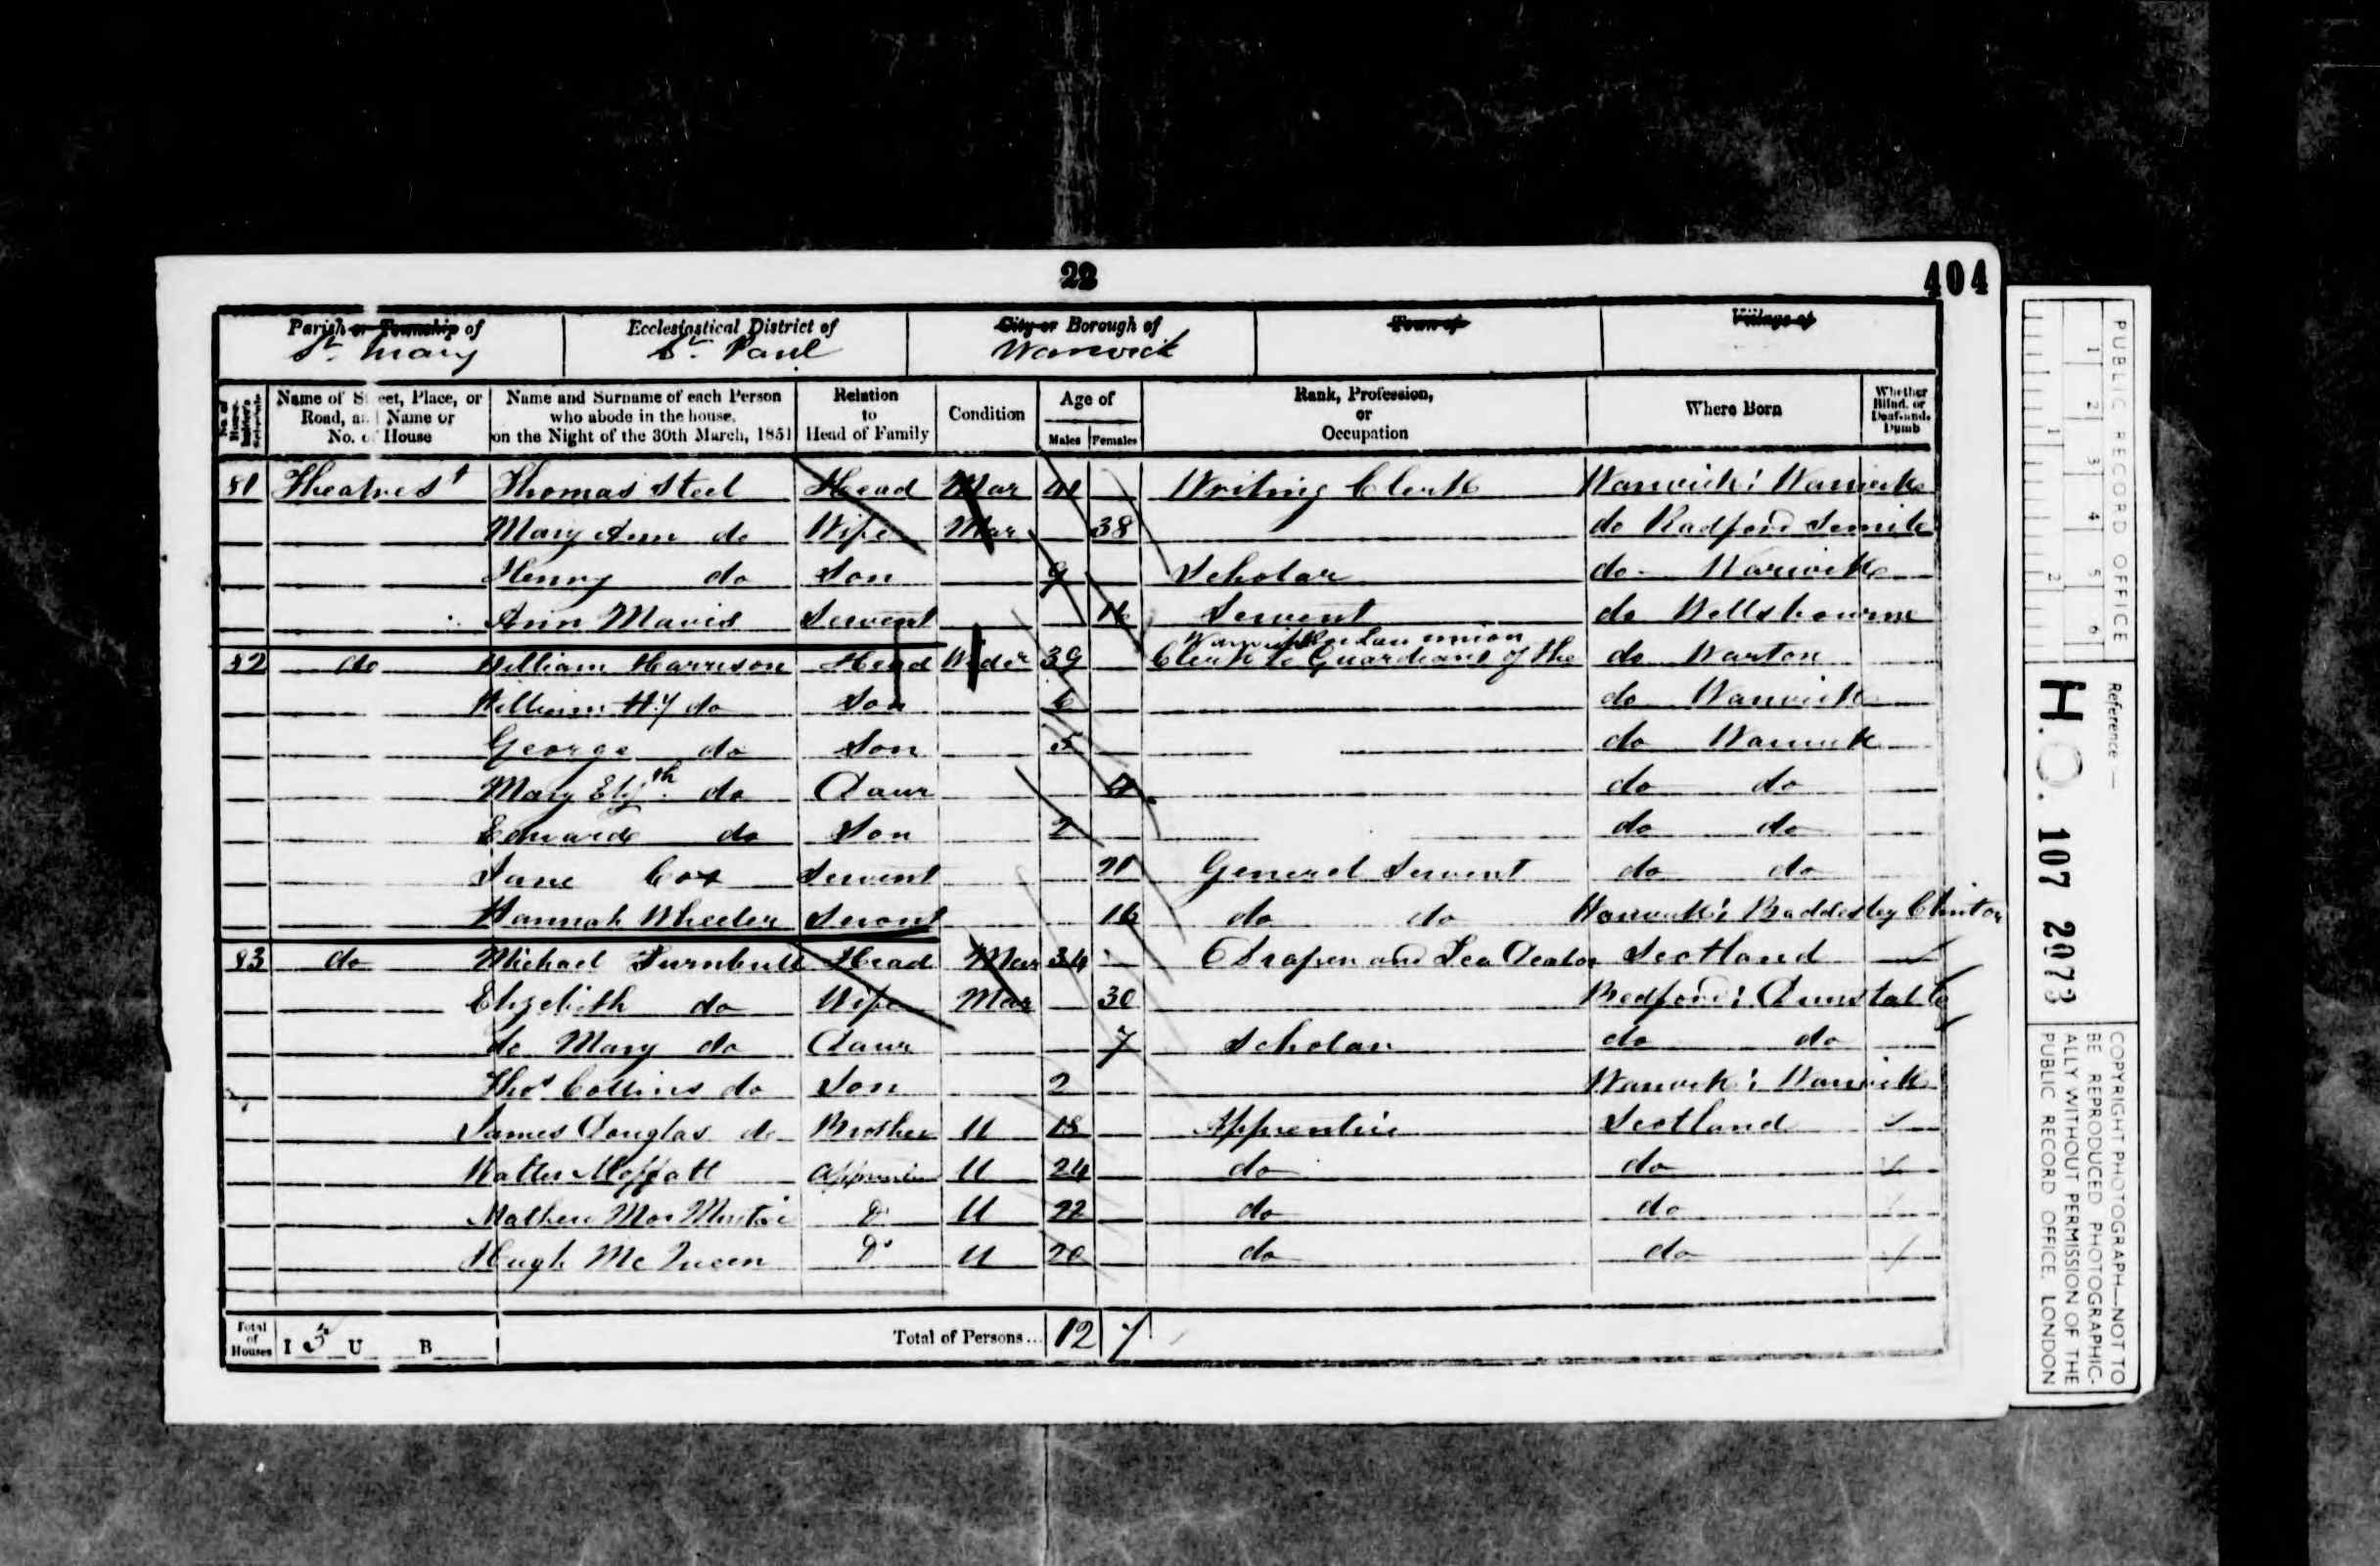 22
404
Parish or Township of Ecclesiastical District of City or Borough of Town of Village of
St. Mary St. Paul Warwick
No. of Householder's Schedule Name of Street, Place, or Road, and Name or No. of House Name and Surname of each Person who abode in the house, on the Night of the 30th March, 1851 Relation to Head of Family Condition Age of Males Females Rank, Profession, or Occupation Where Born Whether Blind, or Deaf-and-Dumb
81 Theatre St Thomas Steel Head Mar 41 Writing Clerk Warwick: Warwick
Mary Ann do Wife Mar 38 do Radford Semile
Henry do Son 9 Scholar do Warwick
Ann Mavis Servent 16 Servent do Wellsbourne
Warwick Poor Law union
82 do William Harrison Head Wider 39 Clerk to Guardians of the do Warton
William Hy do Son 6 do Warwick
George do Son 5 do Warwick
Mary Elizth do Daur do do
Edward do Son 2 do do
Jane Cox Servent 21 General Servent do do
Hannah Wheeler Servent 16 do do Warwick: Baddesley Clinton
83 do Michael Turnbull Head Mar 34 Draper and Tea Dealer Scotland
Elizebeth do Wife Mar 30 Bedford: Dunstable
do Mary do Daur 7 Scholar do do
Thos Collins do Son 2 Warwick: Warwick
James Douglas do Brother U 18 Apprentice Scotland
Walter Moffatt Apprentice U 24 do do
Mathew Do U 22 do do
Hugh Mc Queen Do U 20 do do
Total of Houses I 3 U B Total of Persons... 12 7
PUBLIC RECORD OFFICE
1 2 3 4 5 6
1 2
Reference:—
H.O. 107 2073
COPYRIGHT PHOTOGRAPH—NOT TO
BE REPRODUCED PHOTOGRAPHIC-
ALLY WITHOUT PERMISSION OF THE
PUBLIC RECORD OFFICE, LONDON